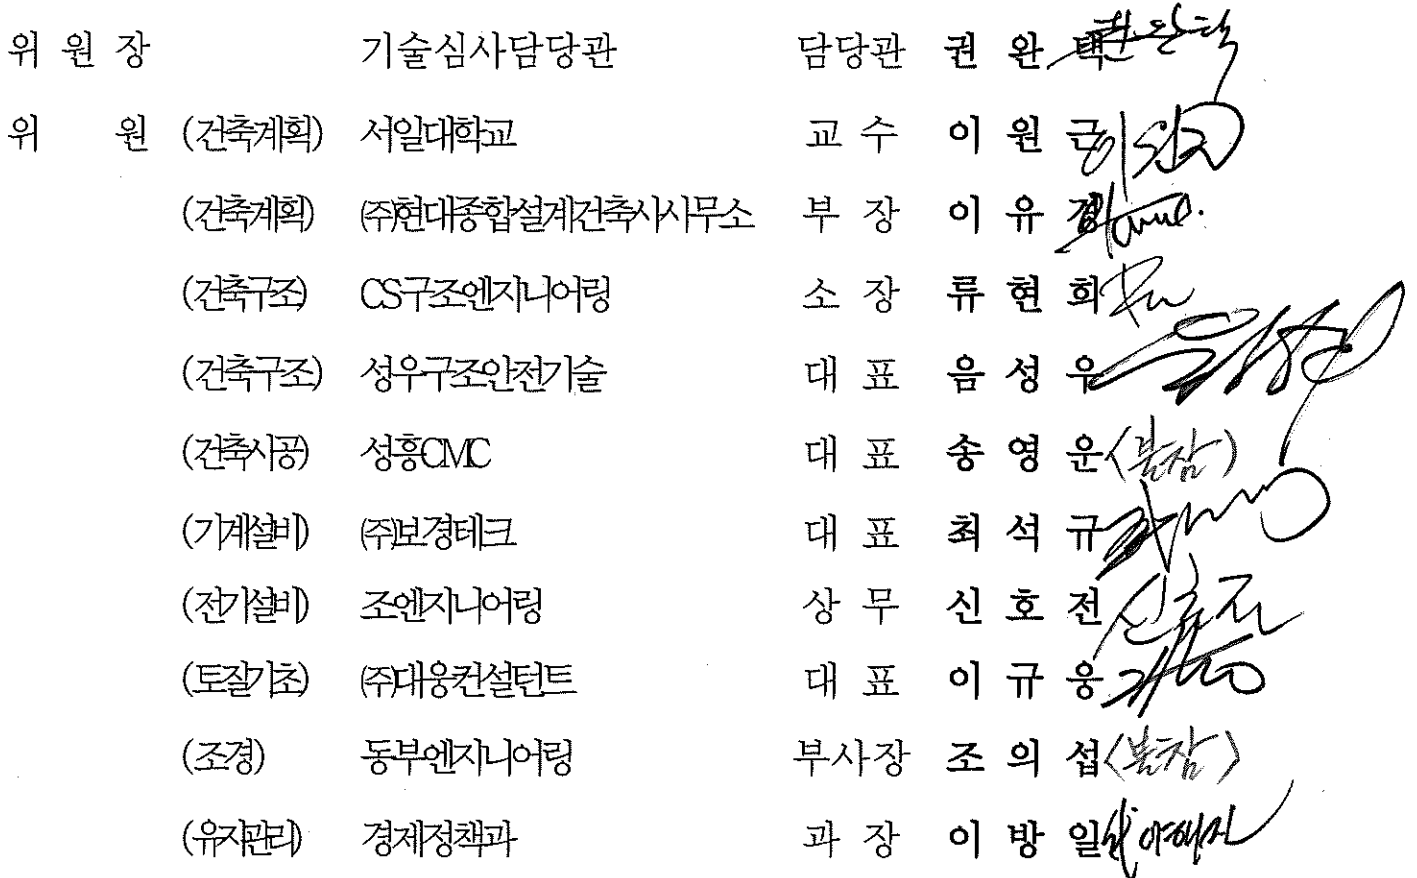 위 원 장 기술심사담당관 담당관 권 완 택
위 원 (건축계획) 서일대학교 교 수 이 원 근
(건축계획) ㈜현대종합설계건축사사무소 부 장 이 유 경
(건축구조) CS구조엔지니어링 소 장 류 현 희
(건축구조) 성우구조안전기술 대 표 음 성 우
(건축시공) 성흥CMC 대 표 송 영 운 (불참)
(기계설비) ㈜보경테크 대 표 최 석 규
(전기설비) 조엔지니어링 상 무 신 호 전 신호전
(토질기초) ㈜대웅컨설턴트 대 표 이 규 웅
(조경) 동부엔지니어링 부사장 조 의 섭 (불참)
(유지관리) 경제정책과 과 장 이 방 일